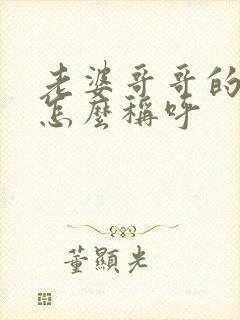 老婆哥哥的
怎麼稱呼
董顯光